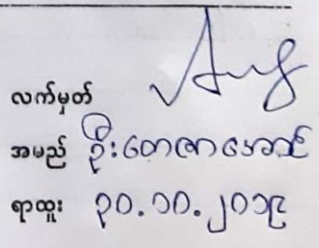 လက်မှတ်
အမည် ဦးတေဇာအောင်
ရာထူး ၃၀.၁၀.၂၀၁၉